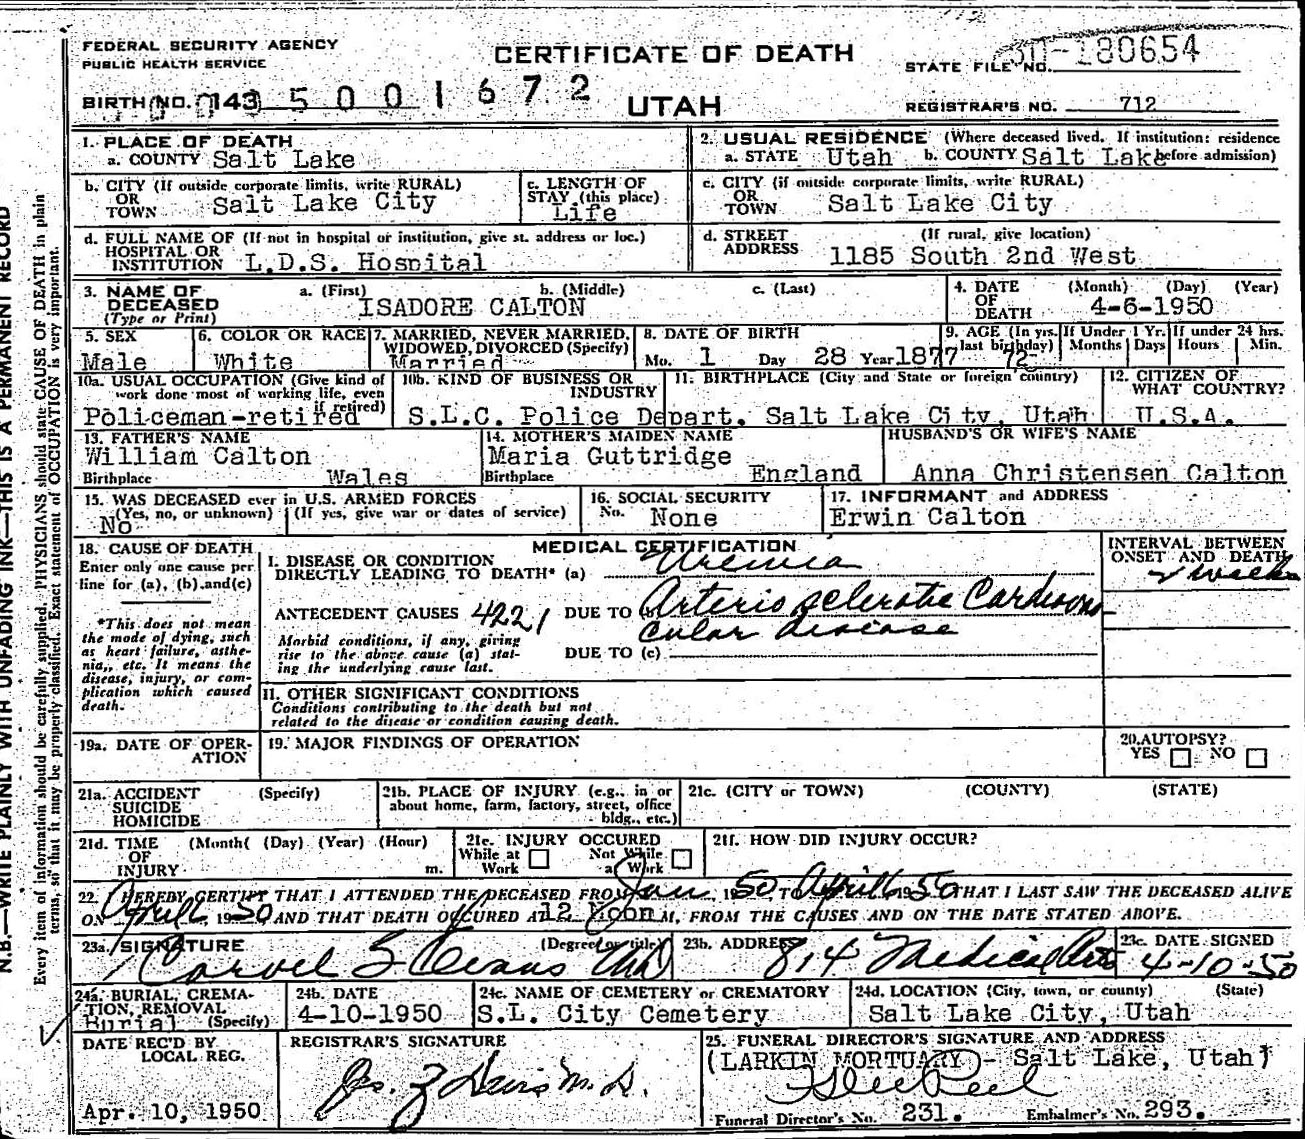 FEDERAL SECURITY AGENCY
PUBLIC HEALTH SERVICE
CERTIFICATE OF DEATH
STATE FILE NO. 50-180654
BIRTH NO. 143 5 0 0 1 6 7 2
UTAH
REGISTRAR'S NO. 712
1. PLACE OF DEATH
a. COUNTY Salt Lake
2. USUAL RESIDENCE (Where deceased lived. If institution: residence
a. STATE Utah b. COUNTY Salt Lake before admission)
b. CITY (If outside corporate limits, write RURAL)
OR
TOWN Salt Lake City
c. LENGTH OF
STAY (this place)
Life
c. CITY (if outside corporate limits, write RURAL)
OR
TOWN Salt Lake City
d. FULL NAME OF (If not in hospital or institution, give st. address or loc.)
HOSPITAL OR
INSTITUTION L.D.S. Hospital
d. STREET (If rural, give location)
ADDRESS 1185 South 2nd West
3. NAME OF a. (First) b. (Middle) c. (Last)
DECEASED ISADORE CALTON
(Type or Print)
4. DATE (Month) (Day) (Year)
OF
DEATH 4-6-1950
5. SEX
Male
6. COLOR OR RACE
White
7. MARRIED, NEVER MARRIED,
WIDOWED, DIVORCED (Specify)
Married
8. DATE OF BIRTH
Mo. 1 Day 28 Year 1877
9. AGE (In yrs.
last birthday)
72
If Under 1 Yr.
Months Days
If under 24 hrs.
Hours Min.
10a. USUAL OCCUPATION (Give kind of
work done most of working life, even
if retired)
Policeman-retired
10b. KIND OF BUSINESS OR
INDUSTRY
S.L.C. Police Depart.
11. BIRTHPLACE (City and State or foreign country)
Salt Lake City, Utah
12. CITIZEN OF
WHAT COUNTRY?
U.S.A.
13. FATHER'S NAME
William Calton
Birthplace Wales
14. MOTHER'S MAIDEN NAME
Maria Guttridge
Birthplace England
HUSBAND'S OR WIFE'S NAME
Anna Christensen Calton
15. WAS DECEASED ever in U.S. ARMED FORCES
(Yes, no, or unknown) (If yes, give war or dates of service)
No
16. SOCIAL SECURITY
No. None
17. INFORMANT and ADDRESS
Erwin Calton
18. CAUSE OF DEATH
Enter only one cause per
line for (a), (b) and (c)
*This does not mean
the mode of dying, such
as heart failure, asthe-
nia,, etc. It means the
disease, injury, or com-
plication which caused
death.
MEDICAL CERTIFICATION
I. DISEASE OR CONDITION
DIRECTLY LEADING TO DEATH* (a) Uremia
ANTECEDENT CAUSES 4221 DUE TO (b) Arterio sclerotic Cardiovas
cular disease
Morbid conditions, if any, giving
rise to the above cause (a) stat-
ing the underlying cause last.
DUE TO (c)
INTERVAL BETWEEN
ONSET AND DEATH
2 weeks
II. OTHER SIGNIFICANT CONDITIONS
Conditions contributing to the death but not
related to the disease or condition causing death.
19a. DATE OF OPER-
ATION
19. MAJOR FINDINGS OF OPERATION
20. AUTOPSY?
YES NO
21a. ACCIDENT (Specify)
SUICIDE
HOMICIDE
21b. PLACE OF INJURY (e.g., in or
about home, farm, factory, street, office
bldg., etc.)
21c. (CITY or TOWN) (COUNTY) (STATE)
21d. TIME (Month( (Day) (Year) (Hour)
OF
INJURY m.
21e. INJURY OCCURED
While at Work Not While at Work
21f. HOW DID INJURY OCCUR?
22. I HEREBY CERTIFY THAT I ATTENDED THE DECEASED FROM Jan 1950 TO April 6 1950 THAT I LAST SAW THE DECEASED ALIVE
ON April 6, 1950, AND THAT DEATH OCCURED AT 12 Noon M, FROM THE CAUSES AND ON THE DATE STATED ABOVE.
23a. SIGNATURE (Degree or title)
23b. ADDRESS
814 Medical Arts
23c. DATE SIGNED
4-10-50
24a. BURIAL, CREMA-
TION, REMOVAL
Burial (Specify)
24b. DATE
4-10-1950
24c. NAME OF CEMETERY or CREMATORY
S.L. City Cemetery
24d. LOCATION (City, town, or county) (State)
Salt Lake City, Utah
DATE REC'D BY
LOCAL REG.
Apr. 10, 1950
REGISTRAR'S SIGNATURE
25. FUNERAL DIRECTOR'S SIGNATURE AND ADDRESS
(LARKIN MORTUARY - Salt Lake, Utah)
Funeral Director's No. 231. Embalmer's No. 293.
N.B.—WRITE PLAINLY WITH UNFADING INK—THIS IS A PERMANENT RECORD
Every item of information should be carefully supplied. PHYSICIANS should state CAUSE OF DEATH in plain
terms, so that it may be properly classified. Exact statement of OCCUPATION is very important.